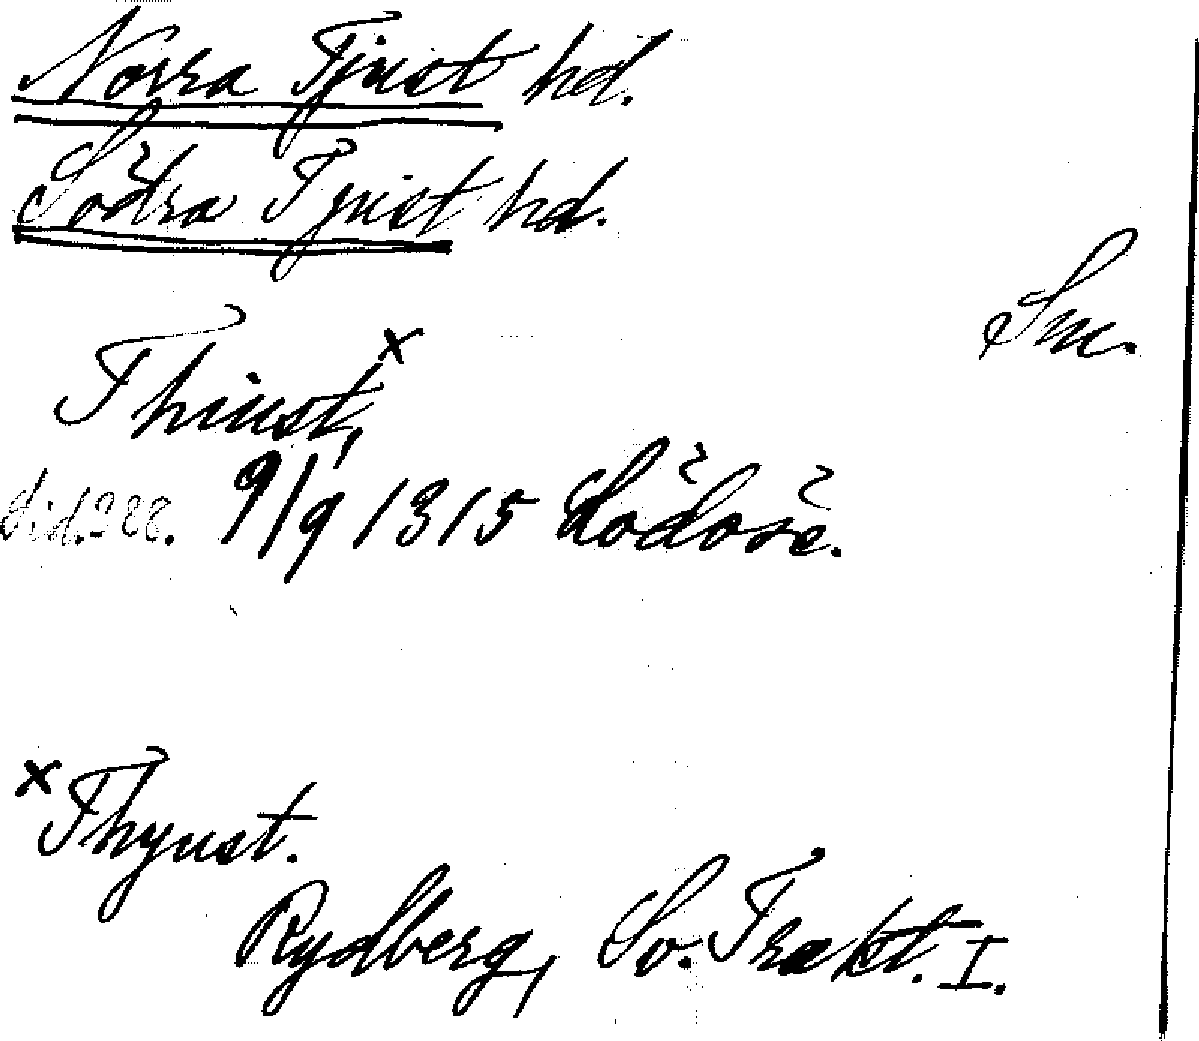 Norra Tjust hd.
Södra Tjust hd.
Sm.
Thiust,ˣ
Sid. 288. 9/9 1315 Lödöse.
ˣ Thyust.
Rydberg, Sv. Trakt. I.